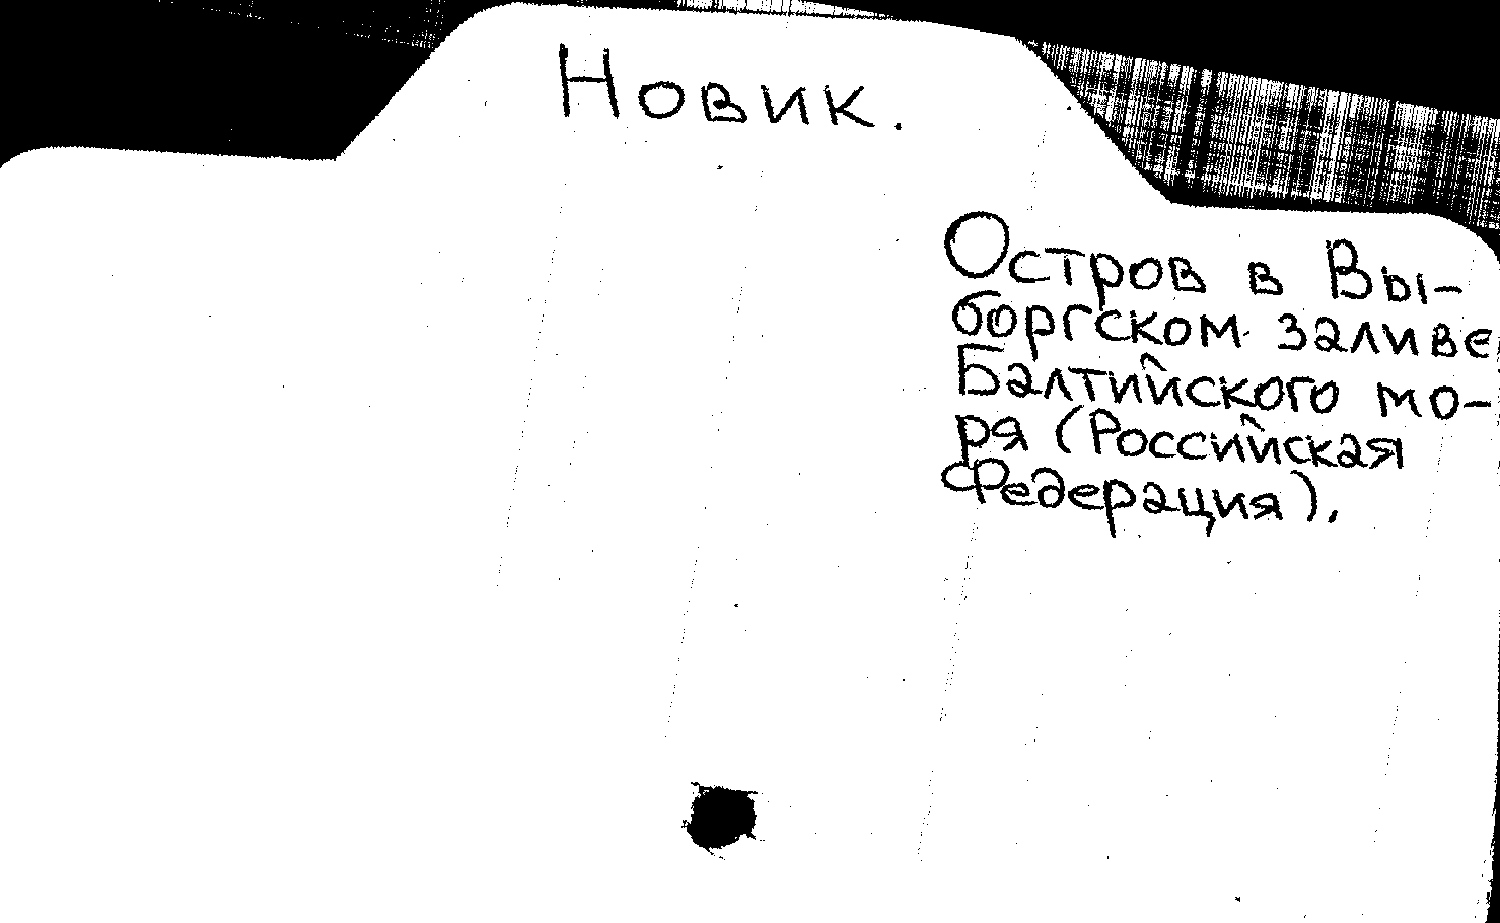 Новик.
Остров в Вы-
боргском заливе
Балтийского мо-
ря (Российская
Федерация).